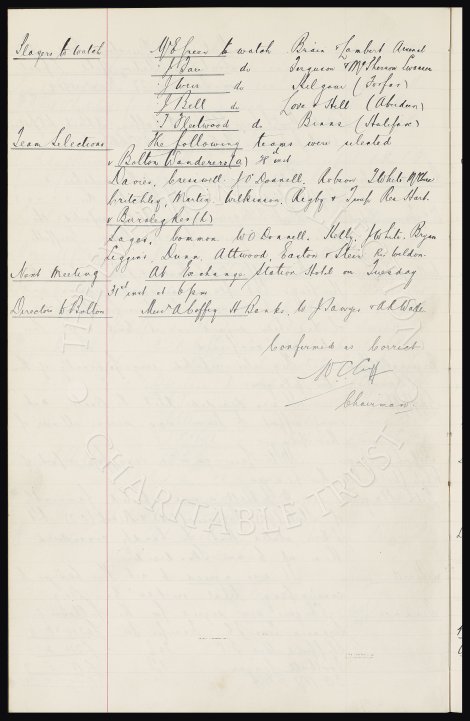 Players to watch Mr E Green to watch Brain & Lambert Arsenal
" J Fare do Ferguson & McPherson Swansea
" J Weir do Kilgour (Forfar)
" J Bell do Love & Hill (Aberdeen)
" T Fleetwood do Binns (Halifax)
Team Selections The following teams were selected
v Bolton Wanderers (a) 28th inst
Davies, Cresswell J O'Donnell, Robson T White
Critchley, Martin, Wilkinson, Rigby & Res Hart.
v Burnley Res (h)
Sagar, Common W O'Donnell. Kelly, J White. Bryan
Leggins, Dunn, Attwood, Easton & Stein Res Weldon.
Next Meeting At Exchange Station Hotel on Tuesday
31st inst at 6 pm
Directors to Bolton Messrs A Coffey H Banks, W J Sawyer & A A Wade
Confirmed as Correct
W C Cuff
Chairman.
CHARITABLE TRUST